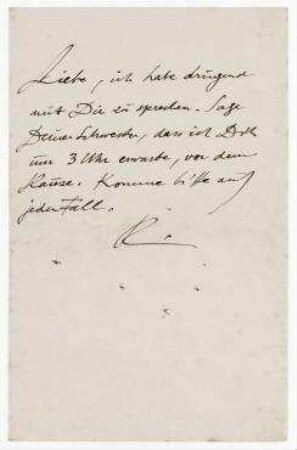 Liebe, ich habe dringend
mit Dir zu sprechen. Sage
Deiner Schwester, dass ich Dich
um 3 Uhr erwarte, vor dem
Hause. Komme bitte auf
jeden Fall.
R.